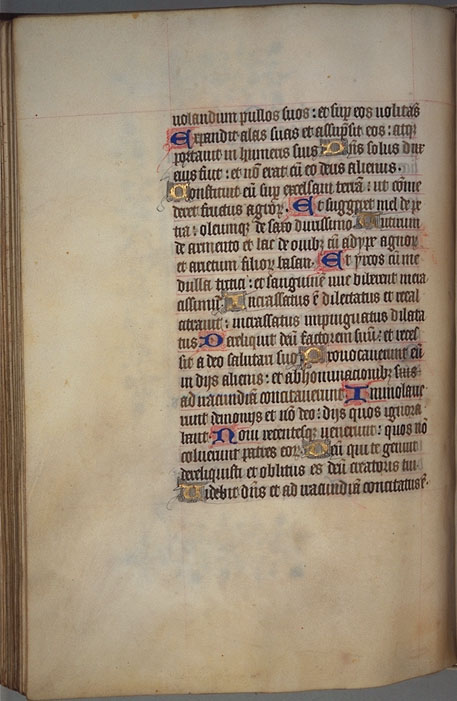 uolandum pullos suos : et sup eos uolitās
Expandit alas suas et assūpsit eos : atqꝫ
portauit in humeris suis Dn̄s solus dux
eius fuit : et nō erat cū eo deus alienus .
Constituit eū sup excelsam terrā : ut cōme
deret fructus agroꝝ . Et suggeret mel de pe
tra : oleumqꝫ de saxo durissimo Butirum
de armento et lac de ouibꝫ cū adype agnoꝝ
et arietum filioꝝ basan . Et yrcos cū me
dulla tritici : et sanguinē uue biberent mera
cissimū Incrassatus ē dilectatus et recal
citrauit : incrassatus inpinguatus dilata
tus Dereliquit deū factorem suū : et reces
sit a deo salutari suo Prouocauerunt eū
in dijs alienis : et abhominacionibꝫ suis
ad iracundiā concitauerunt Immolaue
runt demonijs et nō deo : dijs quos ignora
bant Noui recentesqꝫ uenerunt : quos nō
coluerunt patres eoꝝ Deū qui te genuit
dereliquisti et oblitus es deū creatoris tui .
Uidebit dn̄s et ad iracundiā concitatus ē .